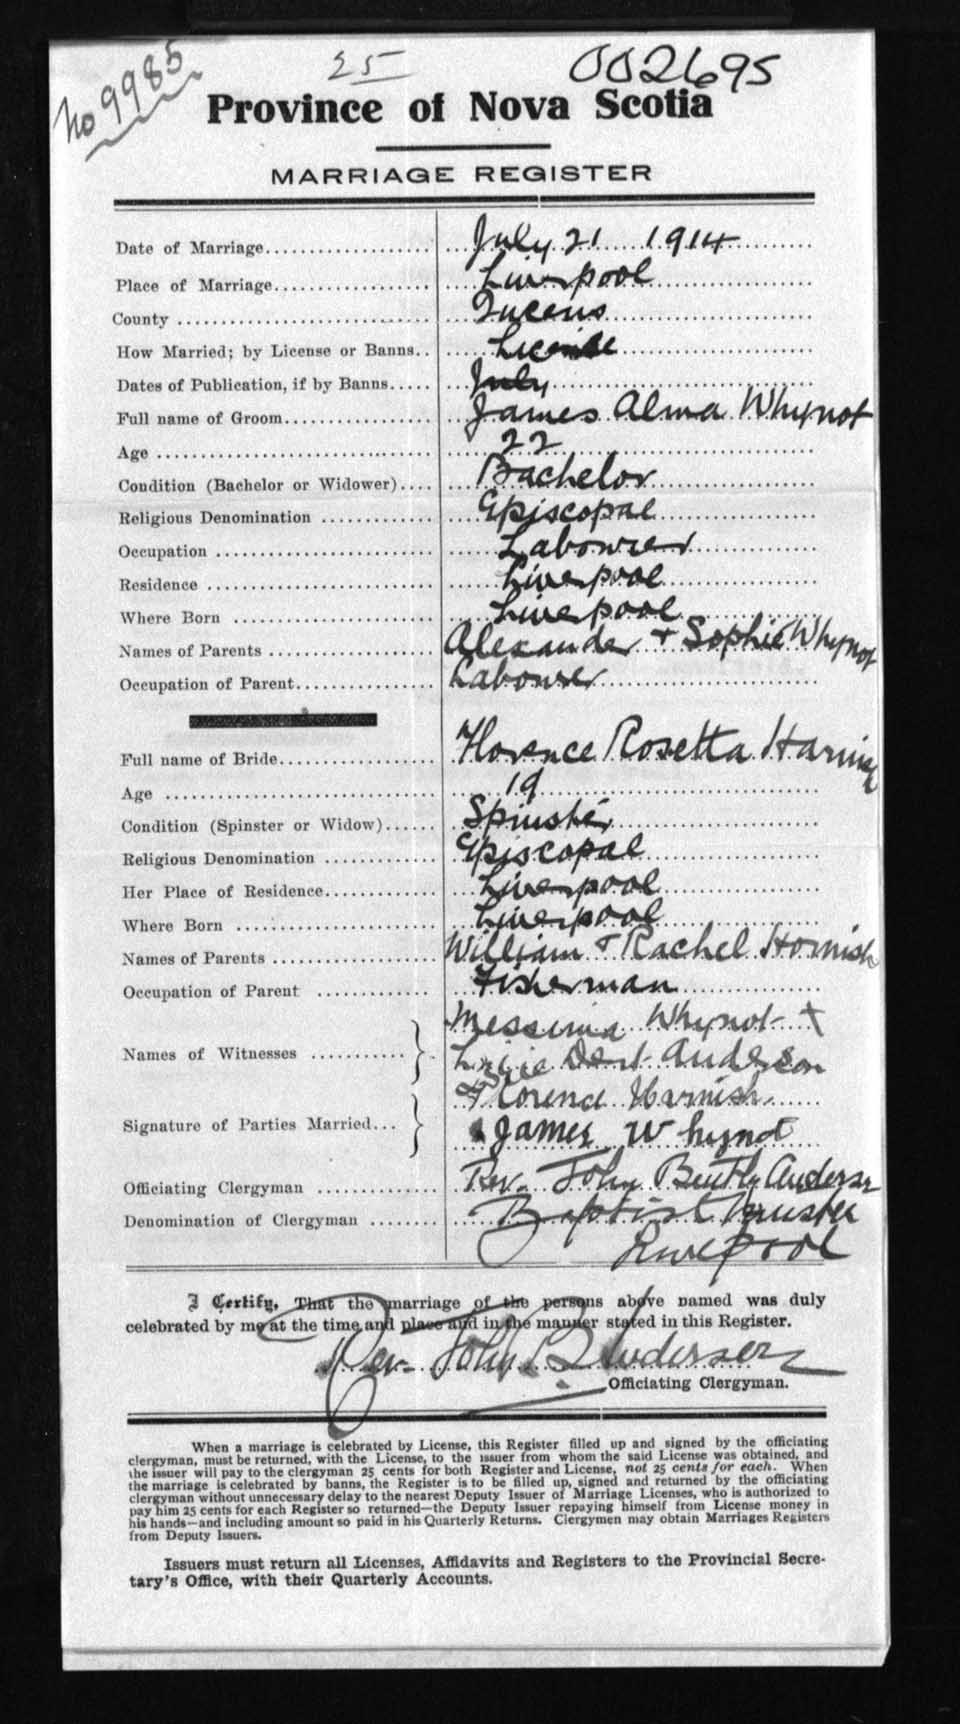 No 9985
25
002695
Province of Nova Scotia
MARRIAGE REGISTER
Date of Marriage July 21 1914
Place of Marriage Liverpool
County Queens
How Married; by License or Banns License
Dates of Publication, if by Banns July
Full name of Groom James Alma Whynot
Age 22
Condition (Bachelor or Widower) Bachelor
Religious Denomination Episcopal
Occupation Labourer
Residence Liverpool
Where Born Liverpool
Names of Parents Alexander + Sophie Whynot
Occupation of Parent Labourer
Full name of Bride Florence Rosetta Harnish
Age 19
Condition (Spinster or Widow) Spinster
Religious Denomination Episcopal
Her Place of Residence Liverpool
Where Born Liverpool
Names of Parents William + Rachel Hornish
Occupation of Parent Fisherman
Names of Witnesses Messima Whynot +
Dent Anderson
Florence Harnish
Signature of Parties Married James Whynot
Officiating Clergyman Rev. John Bently Anderson
Denomination of Clergyman Baptist Minister
Liverpool
I Certify, That the marriage of the persons above named was duly
celebrated by me at the time and place and in the manner stated in this Register.
Rev. John B Anderson
Officiating Clergyman.
When a marriage is celebrated by License, this Register filled up and signed by the officiating
clergyman, must be returned, with the License, to the issuer from whom the said License was obtained, and
the issuer will pay to the clergyman 25 cents for both Register and License, not 25 cents for each. When
the marriage is celebrated by banns, the Register is to be filled up, signed and returned by the officiating
clergyman without unnecessary delay to the nearest Deputy Issuer of Marriage Licenses, who is authorized to
pay him 25 cents for each Register so returned—the Deputy Issuer repaying himself from License money in
his hands—and including amount so paid in his Quarterly Returns. Clergymen may obtain Marriages Registers
from Deputy Issuers.
Issuers must return all Licenses, Affidavits and Registers to the Provincial Secre-
tary's Office, with their Quarterly Accounts.